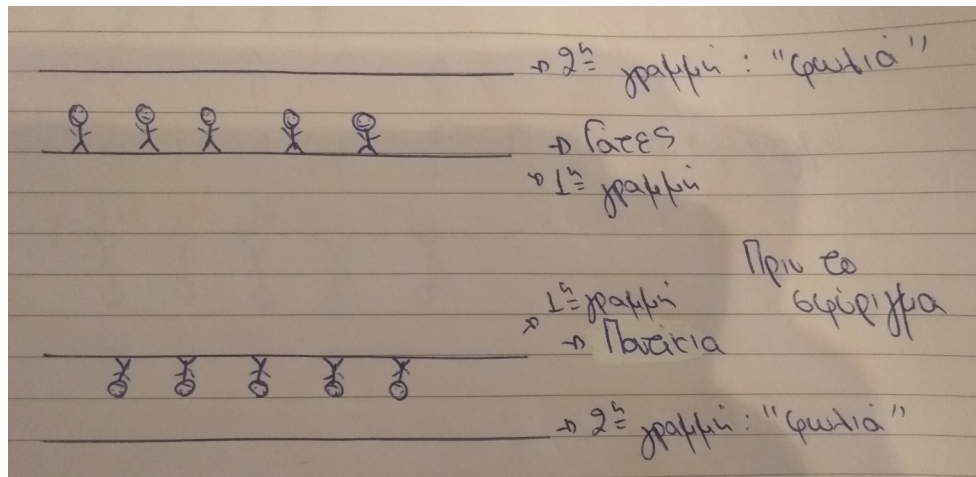 → 2η γραμμή : "φωλιά"
→ Γάτες
→ 1η γραμμή
Πριν το
σφύριγμα
→ 1η γραμμή
→ Ποντίκια
→ 2η γραμμή : "φωλιά"